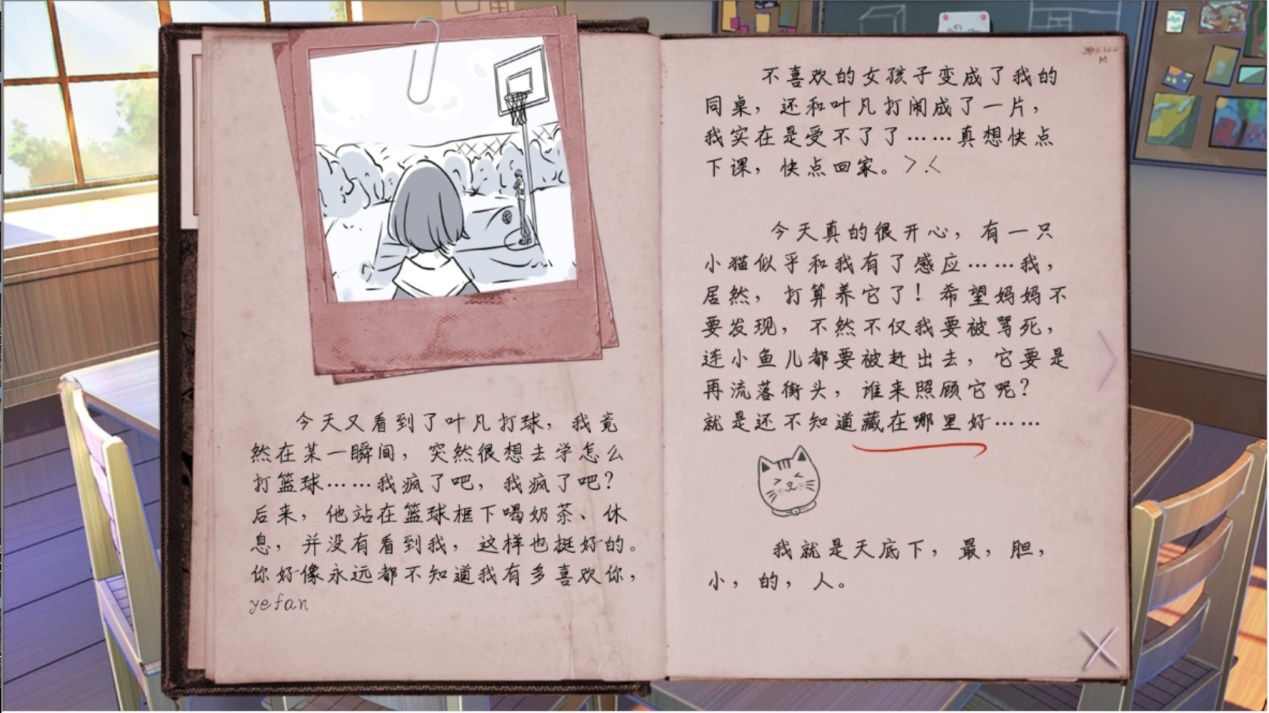 今天又看到了叶凡打球，我竟
然在某一瞬间，突然很想去学怎么
打篮球……我疯了吧，我疯了吧？
后来，他站在篮球框下喝奶茶、休
息，并没有看到我，这样也挺好的。
你好像永远都不知道我有多喜欢你，
yefan
不喜欢的女孩子变成了我的
同桌，还和叶凡打闹成了一片，
我实在是受不了了……真想快点
下课，快点回家。＞.＜
今天真的很开心，有一只
小猫似乎和我有了感应……我，
居然，打算养它了！希望妈妈不
要发现，不然不仅我要被骂死，
连小鱼儿都要被赶出去，它要是
再流落街头，谁来照顾它呢？
就是还不知道藏在哪里好……
我就是天底下，最，胆，
小，的，人。